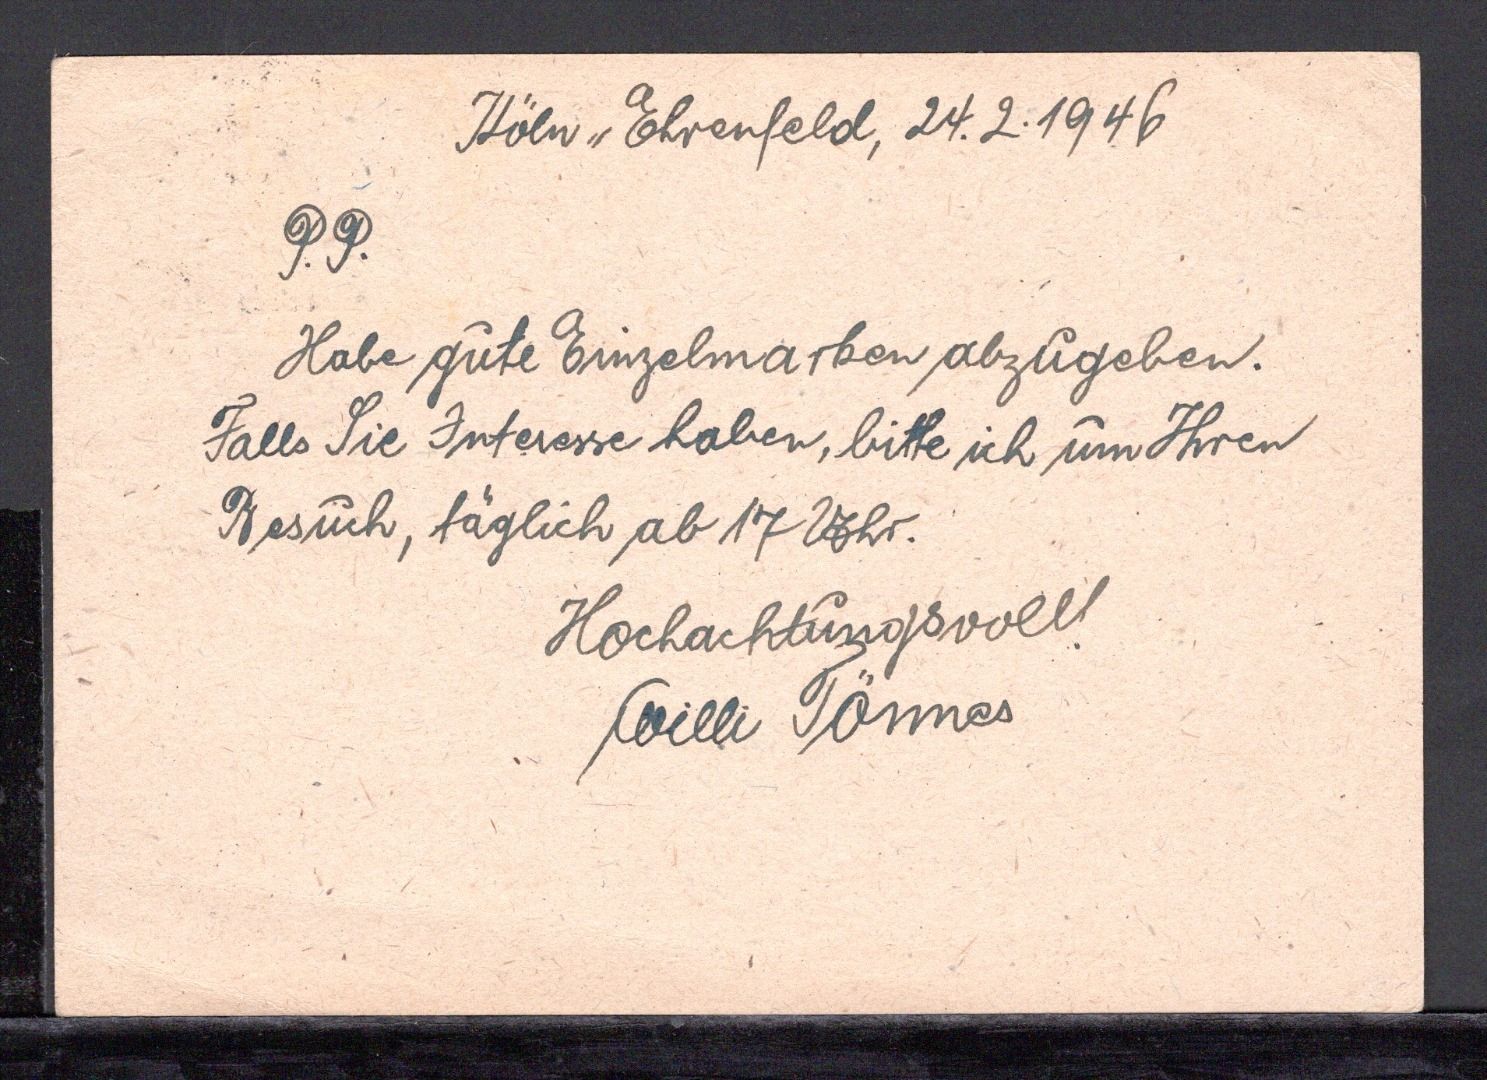 Köln-Ehrenfeld, 24. 2. 1946
P.P.
Habe gute Einzelmarken abzugeben.
Falls Sie Interesse haben, bitte ich um Ihren
Besuch, täglich ab 17 Uhr.
Hochachtungsvoll!
Willi Tönnes